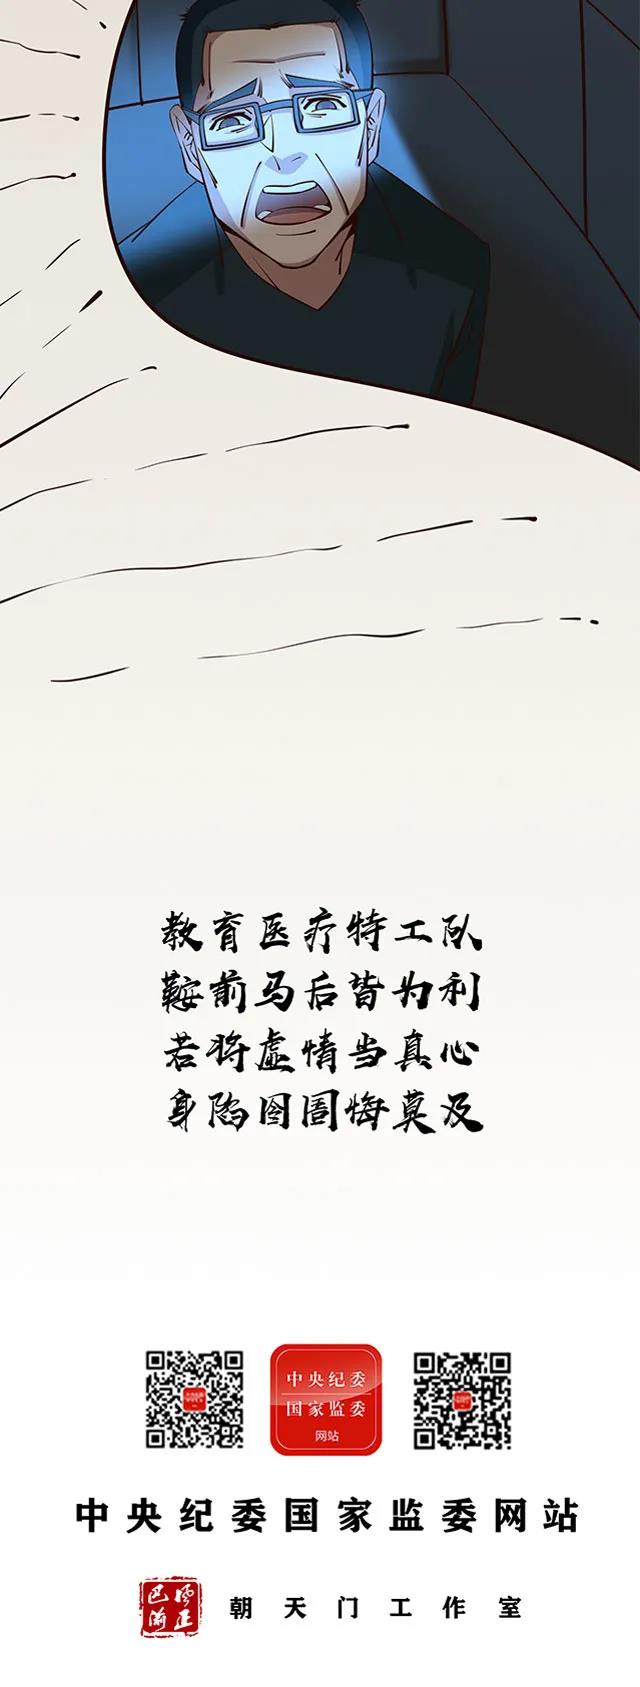 教育医疗特工队
鞍前马后皆为利
若将虚情当真心
身陷囹圄悔莫及
中央纪委
国家监委
网站
中央纪委国家监委网站
巴渝
风正
朝天门工作室